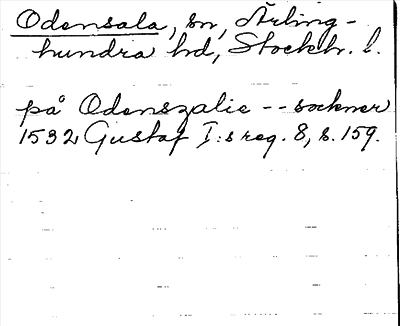 Odensala, sn, Ärling-
hundra hd, Stockh. l.
på Odenszalie -- sockner
1532 Gustaf I:s reg. 8, s. 159.